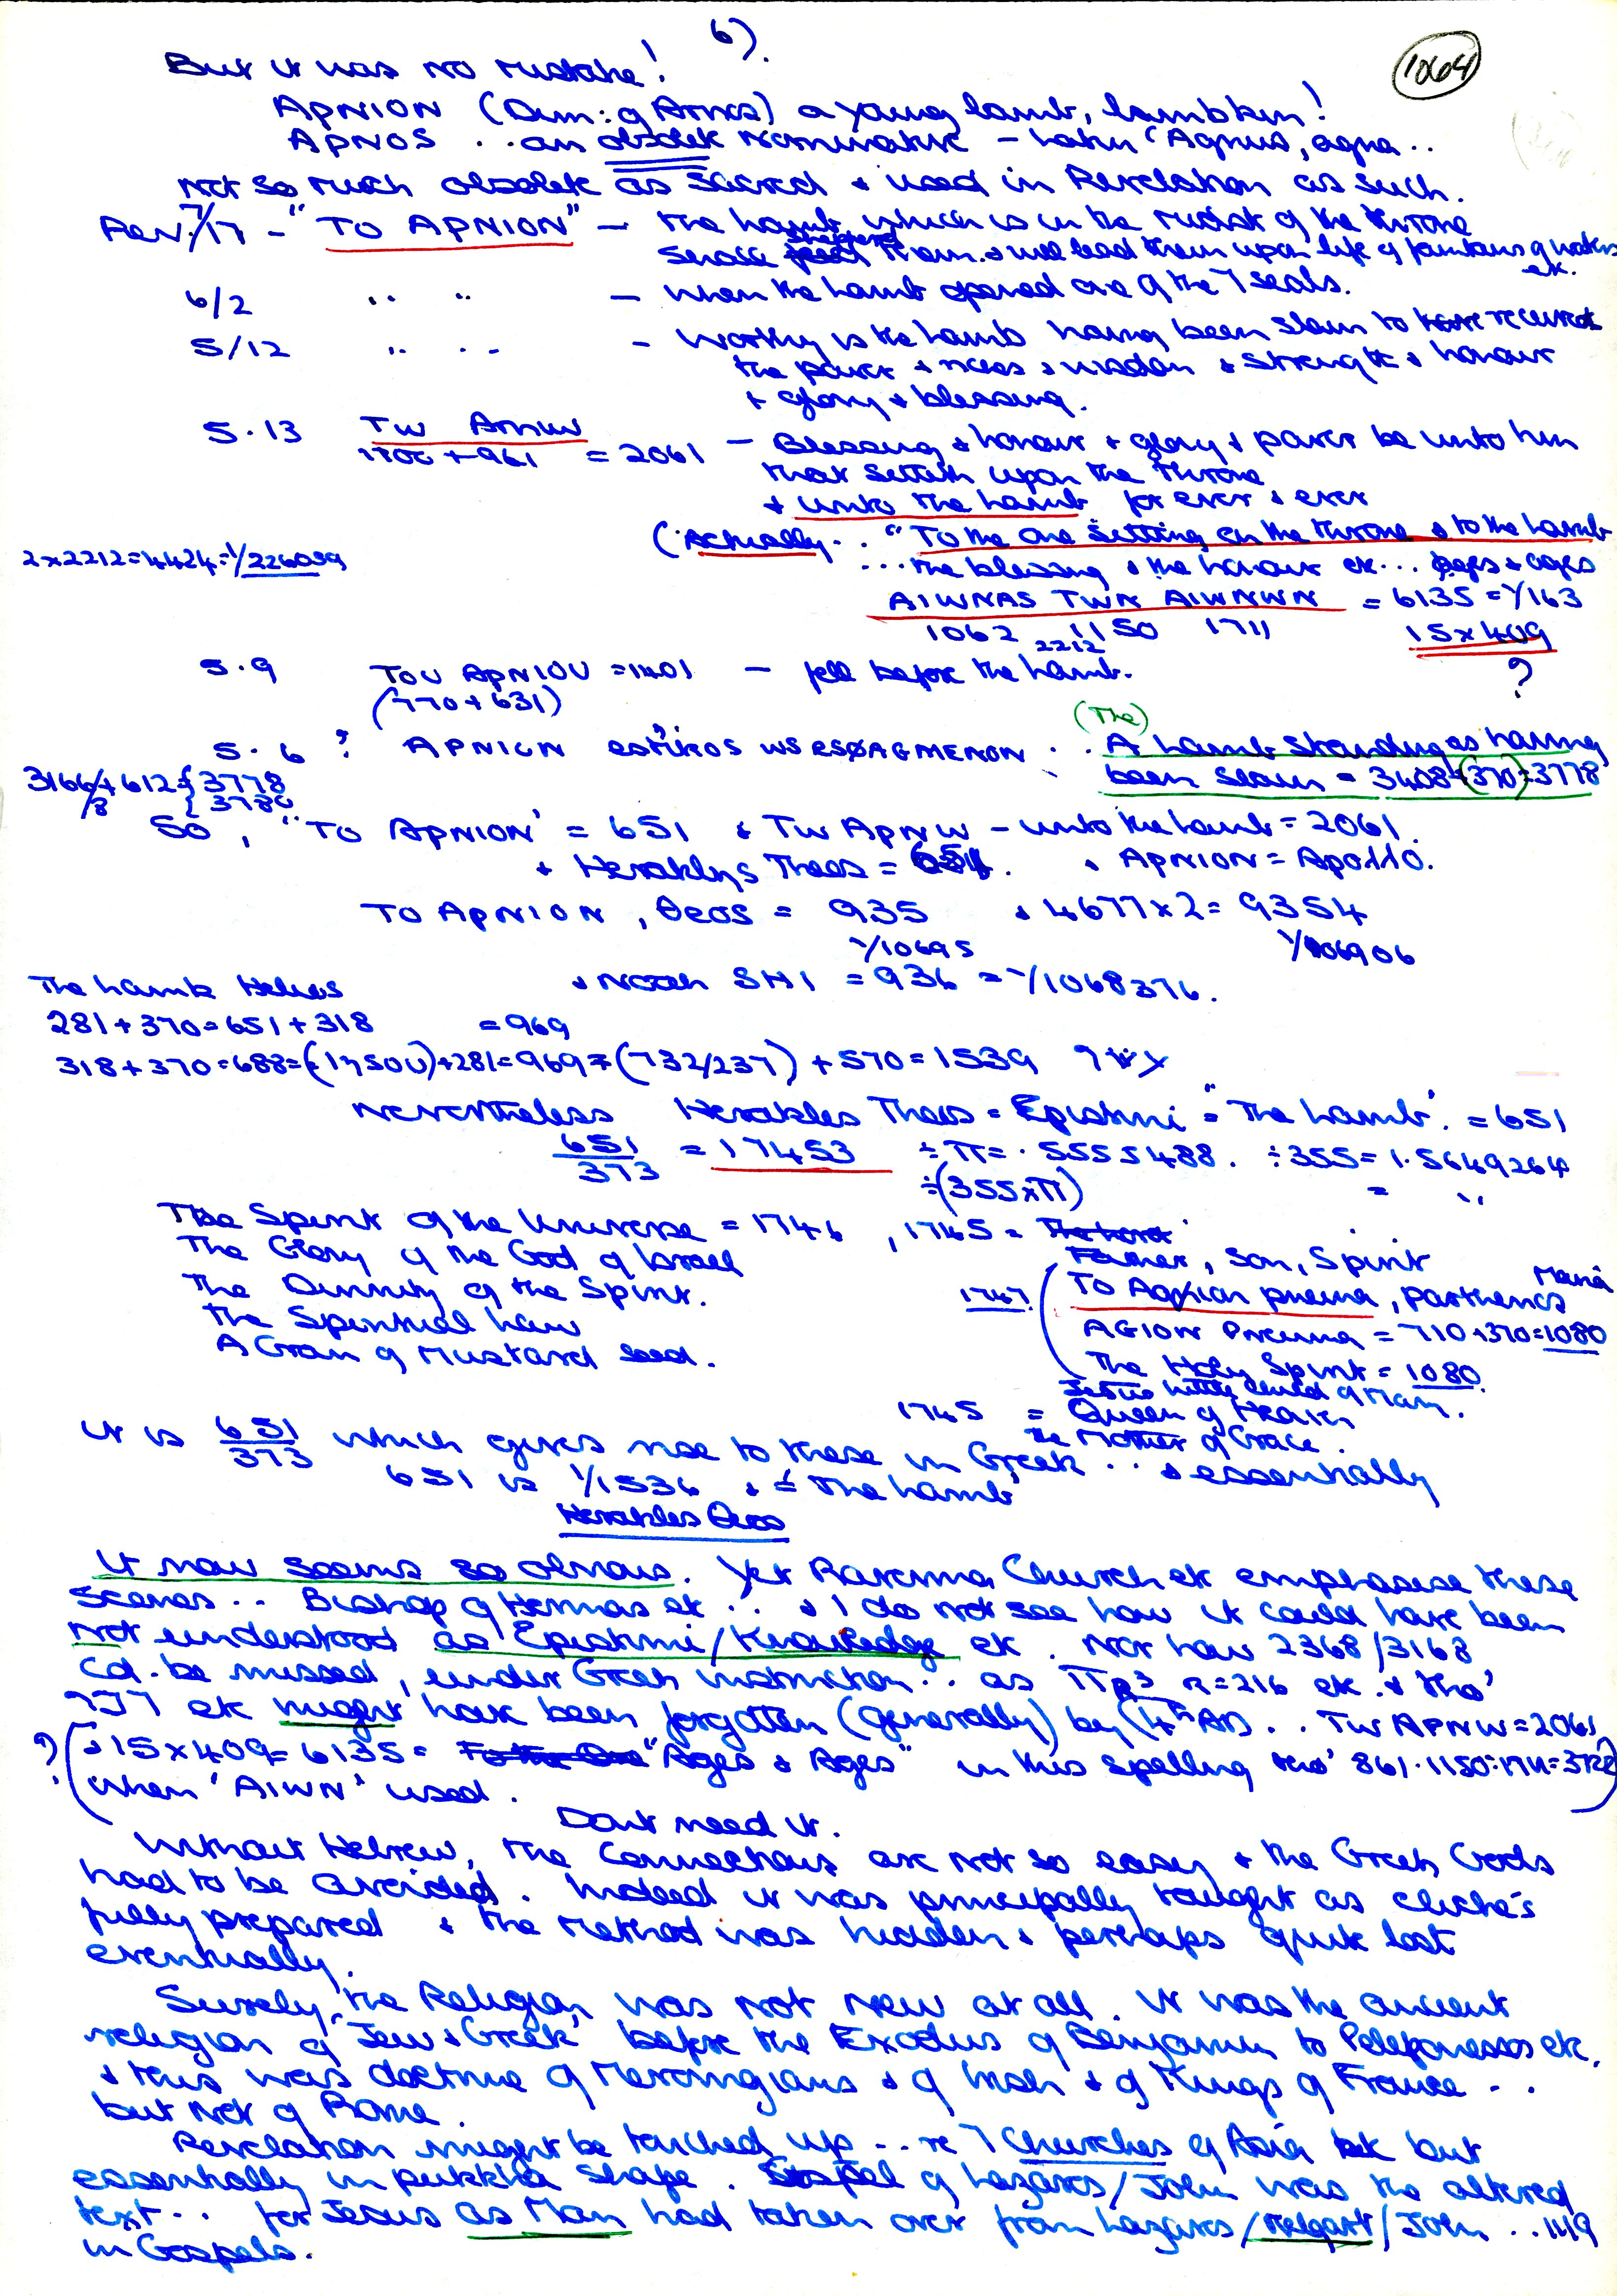 6).
1064
But it was no mistake!
APNION (Dim: of Arnos) a young lamb, lambkin!
APNOS .. an obsolete nominative - Latin 'Agnus, agna ..
not so much obsolete as sacred + used in Revelation as such.
Rev. 7/17 - "TO APNION" - the Lamb which is in the midst of the throne
shall shepherd them + will lead them upon life of fountains of waters
etc.
6/2 " " - when the Lamb opened one of the 7 seals.
5/12 " " - Worthy is the Lamb having been slain to receive
the power + riches + wisdom + strength + honour
+ glory + blessing.
5.13 TW Arniw - Blessing + honour + glory + power be unto him
1100 + 961 = 2061
that sitteth upon the throne
+ unto the Lamb for ever + ever
(Actually .. "To the One sitting on the throne + to the Lamb
2x2212=4424=1/226039 ... the blessing + the honour etc... ages + ages
AIWNAS TWN AIWNWN = 6135 = 1/163
1062 1150 1711 15x409
2212
5.9 TOU APNIOU = 1401 - fell before the Lamb. ?
(770+631)
(The)
5.6 ? APNION estikos ws esøAGMENON .. A Lamb standing as having
been slain = 3408+(370)=3778
3166/8+612={3778
{3780
So, "TO APNION" = 651 + TW APNIW - unto the Lamb = 2061.
+ Heraklys Theos = 651. + APNION = Apollo.
TO APNION, θeos = 935 + 4677x2 = 9354
1/10695 1/106906
+ Noah SH1 = 936 = 1/1068376.
The Lamb Helios
281+370=651+318 = 969
318+370=688=(1)+281=969+(732/237)+570=1539
Nevertheless Herakles Theos = Epistimi = "The Lamb". = 651
651/373 = 17453 ÷ π = .5555488. ÷355= 1.5649264
÷(355xπ) = "
The Spirit of the Universe = 1746, 1745 =
The Glory of the God of Israel Father, Son, Spirit
The Divinity of the Spirit. 1747 (To Agion pneuma, parthenos Maria
The Spiritual Law AGION Pneuma = 710+370=1080
A Grain of Mustard seed. The Holy Spirit = 1080.
Jesus little child of Mary.
1745 = Queen of Heaven
The Mother of Grace.
It is 651/373 which gives rise to these in Greek .. + essentially
651 is 1/1536 + = 'The Lamb'
Herakles θeos
It now seems so obvious. Yet Ravenna Church etc emphasise these
scenes .. Bishop of Hermas etc .. + I do not see how it could have been
not understood as Epistimi/Knowledge etc. Nor how 2368/3168
cd. be missed, under Greek instruction .. as πR³ R=216 etc. + tho'
etc might have been forgotten (generally) by (4th AD) .. TW APNW = 2061,
?(+ 15x409 = 6135 = "Ages + Ages" in this spelling tho' 861.1150:1711=3722)
when 'AIWN' used.
Dont need it.
Without Hebrew, the connections are not so easy + the Greek Gods
had to be avoided. Indeed it was principally taught as cliche's
fully prepared + the method was hidden + perhaps quite lost
eventually.
Surely, the Religion was not new at all. It was the ancient
religion of 'Jew + Greek' before the Exodus of Benjamin to Peleponessos etc.
+ this was doctrine of Merovingians + of Irish + of Kings of France ..
but not of Rome.
Revelation might be touched up .. re 7 Churches of Asia but
essentially in pukkha shape. Gospel of Lazarus/John was the altered
text .. for Jesus as Man had taken over from Lazarus/ /John .. 1119
in Gospels.